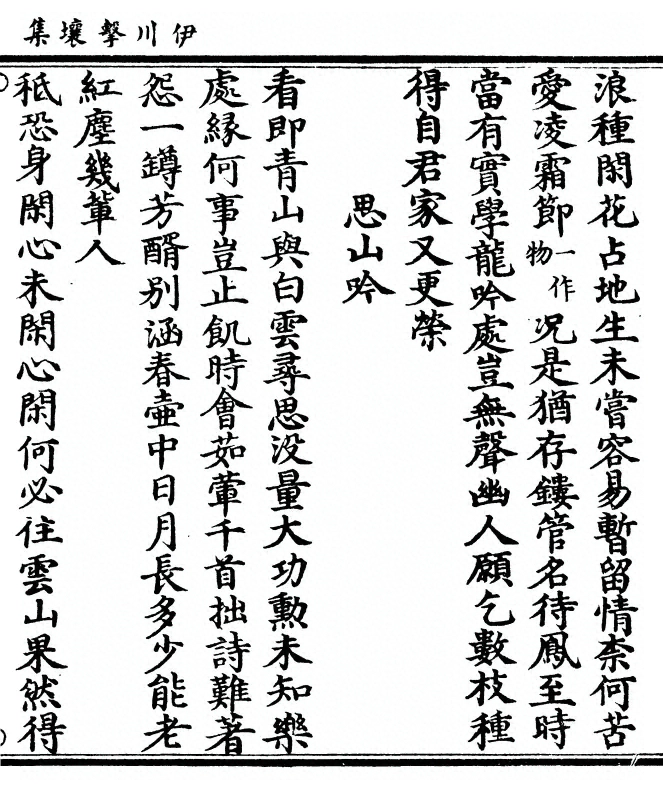 伊川擊壤集
浪種閑花占地生未嘗容易暫留情柰何苦
愛凌霜節一作物况是猶存鏤管名待鳳至時
當有實學龍吟處豈無聲幽人願乞數枝種
得自君家又更榮
思山吟
看即青山與白雲尋思没量大功勲未知樂
處緣何事豈止飢時會茹葷千首拙詩難著
怨一罇芳醑别涵春壷中日月長多少能老
紅塵幾輩人
秪恐身閑心未閑心閑何必往雲山果然得